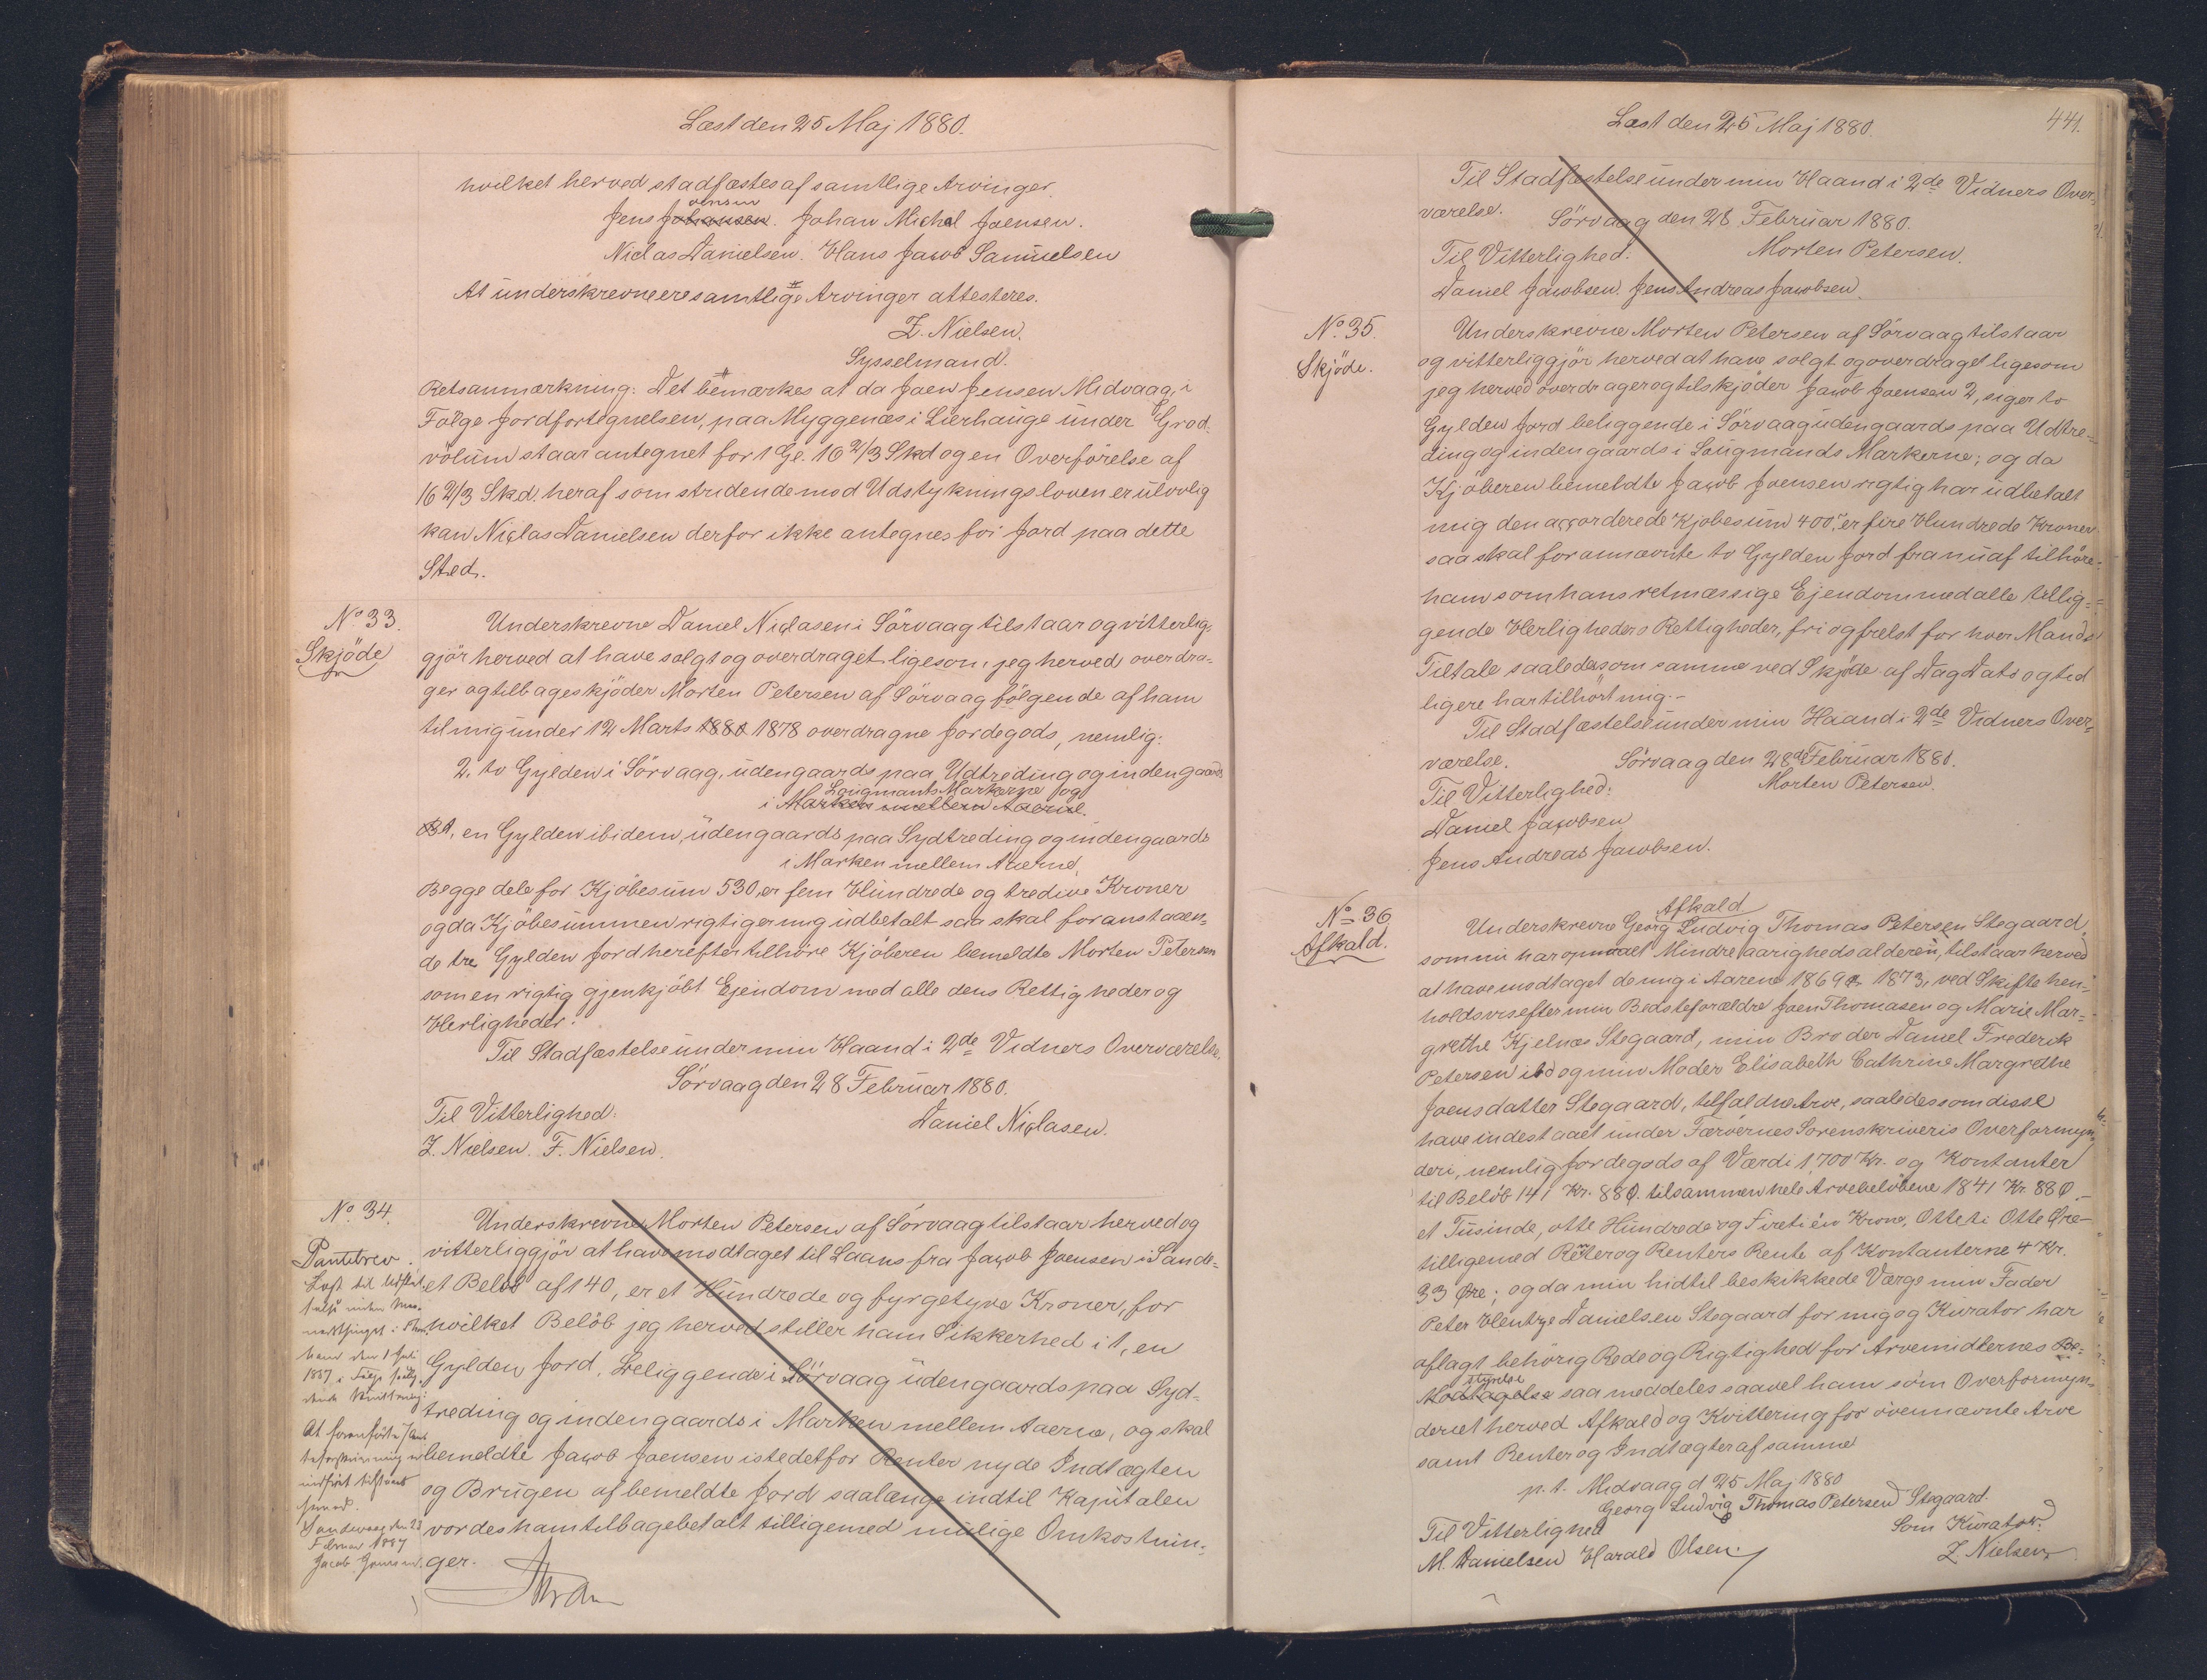 Læst den 25 Maj 1880.
hvilket herved stadfæstes af samtlige Arvinger.
oensen
Jens Johansen. Johan Michal Joensen.
Niclas Danielsen. Hans Jacob Samuelsen
At underskrevne ere samtlige Arvinger attesteres.
Z. Nielsen.
Sysselmand.
Retsanmærkning: Det bemærkes at da Joen Jensen Midvaag, i
Følge Jordfortegnelsen, paa Myggenæs i Lierhauge under Grod
völum staar antegnet for 1 Gl. 16 2/3 Skd og en Overførelse af
16 2/3 Skd. heraf som stridende mod Udstykningsloven er ulovlig
kan Niclas Danielsen derfor ikke antegnes for Jord paa dette
Sted.
No 33.
Skjøde
Underskrevne Daniel Niclasen i Sörvaag tilstaar og vitterlig-
gjör herved at have solgt og overdraget ligesom jeg herved overdra-
ger og tilbageskjöder Morten Petersen af Sörvaag fölgende af ham
til mig under 12 Marts 1880 1878 overdragne Jordegods, nemlig:
2, to Gylden i Sörvaag, udengaards paa Udtreding og indengaards
Laugmands Markerne og
i Marken mellem Aaerne.
1, en Gylden ibidem, udengaards paa Sydtreding og indengaards
i Marken mellem Aaerne,
Begge dele for Kjöbesum 530, er fem Hundrede og tredive Kroner
og da Kjöbesummen rigtig er mig udbetalt saa skal foranstaaen-
de tre Gylden Jord herefter tilhöre Kjöberen bemeldte Morten Petersen
som en rigtig gjenkjöbt Ejendom med alle dens Rettigheder og
Herligheder.
Til Stadfæstelse under min Haand i 2de Vidners Overværelse.
Sörvaag den 28 Februar 1880.
Til Vitterlighed:
Daniel Niclasen.
Z. Nielsen. F. Nielsen.
No. 34.
Pantebrev.
Underskrevne Morten Petersen af Sörvaag tilstaar herved og
vitterliggjör at have modtaget til Laans fra Jacob Joensen i Sande-
et Belöb af 140, er et Hundrede og fyrgetyve Kroner, for
hvilket Belöb jeg herved stiller ham Sikkerhed i 1, en
Gylden Jord, beliggende i Sörvaag udengaards paa Syd-
treding og indengaards i Marken mellem Aaerne, og skal
bemeldte Jacob Joensen istedetfor Renter nyde Indtægten
og Brugen af bemeldte Jord saalænge indtil Kapitalen
vordes ham tilbagebetalt tilligemed mulige Omkostnin-
ger.
den 1 Juli
1887 i Følge
At
Sandevaag den 23
Februar 1887
Jacob Joensen.
Læst den 25 Maj 1880.
441.
Til Stadfæstelse under min Haand i 2de Vidners Over-
værelse.
Sörvaag den 28 Februar 1880.
Til Vitterlighed:
Morten Petersen.
Daniel Jacobsen. Jens Andreas Jacobsen.
No. 35.
Skjöde.
Underskrevne Morten Petersen af Sörvaag tilstaar
og vitterliggjör herved at have solgt og overdraget ligesom
jeg herved overdrager og tilskjöder Jacob Joensen 2, siger to
Gylden Jord beliggende i Sörvaag udengaards paa Udtre-
ding og indengaards i Laugmands Markerne; og da
Kjöberen bemeldte Jacob Joensen rigtig har udbetalt
mig den accorderede Kjöbesum 400, er fire Hundrede Kroner
saa skal forannævnte to Gylden Jord fra nu af tilhöre
ham som hans retmæssige Ejendom med alle tillig-
gende Herligheder o Rettigheder, fri og frelst for hver Mands
Tiltale saaledes som samme ved Skjöde af Dags Dato og tid
ligere har tilhört mig.-
Til Stadfæstelse under min Haand i 2de Vidners Over-
værelse.
Sörvaag den 28de Februar 1880.
Til Vitterlighed:
Morten Petersen.
Daniel Jacobsen
Jens Andreas Jacobsen.
No 36
Afkald.
Afkald
Underskrevne Georg Ludvig Thomas Petersen Stegaard,
som nu har opnaaet Mindreaarighedsalderen, tilstaar herved
at have modtaget de mig i Aarene 1869 & 1873, ved Skifte hen-
holdsvis efter min Bedsteforældre Joen Thomasen og Marie Mar-
grethe Kjelnæs Stegaard, min Broder Daniel Frederik
Petersen ibd og min Moder Elisabeth Cathrine Margrethe
Joensdatter Stegaard, tilfaldne Arve, saaledes som disse
have indestaaet under Færøernes Sorenskriveris Overformyn-
deri, nemlig Jordegods af Værdi 1700 Kr. og Kontanter
til Belöb 141 Kr. 88 Ø. tilsammen hele Arvebelöbene 1841 Kr. 88 Ø.-
et Tusinde, otte Hundrede og Firetien Krone, Otteti Otte Øre-
tilligemed Renter og Renters Rente af Kontanterne 4 Kr.
33 Øre; og da min hidtil beskikkede Værge min Fader
Peter Hentze Danielsen Stegaard for mig og Kurator har
aflagt behörig Rede og Rigtighed for Arvemidlernes Be-
styrelse
Modtagelse saa meddeles saavel ham som Overformyn-
deriet herved Afkald og Kvittering for ovennævnte Arve
samt Renter og Indtægter af samme
p. t. Midvaag d 25 Maj 1880
Georg Ludvig Thomas Petersen Stegaard.
Til Vitterlighed
Som Kurator:
M. Danielsen Harald Olsen.
Z. Nielsen